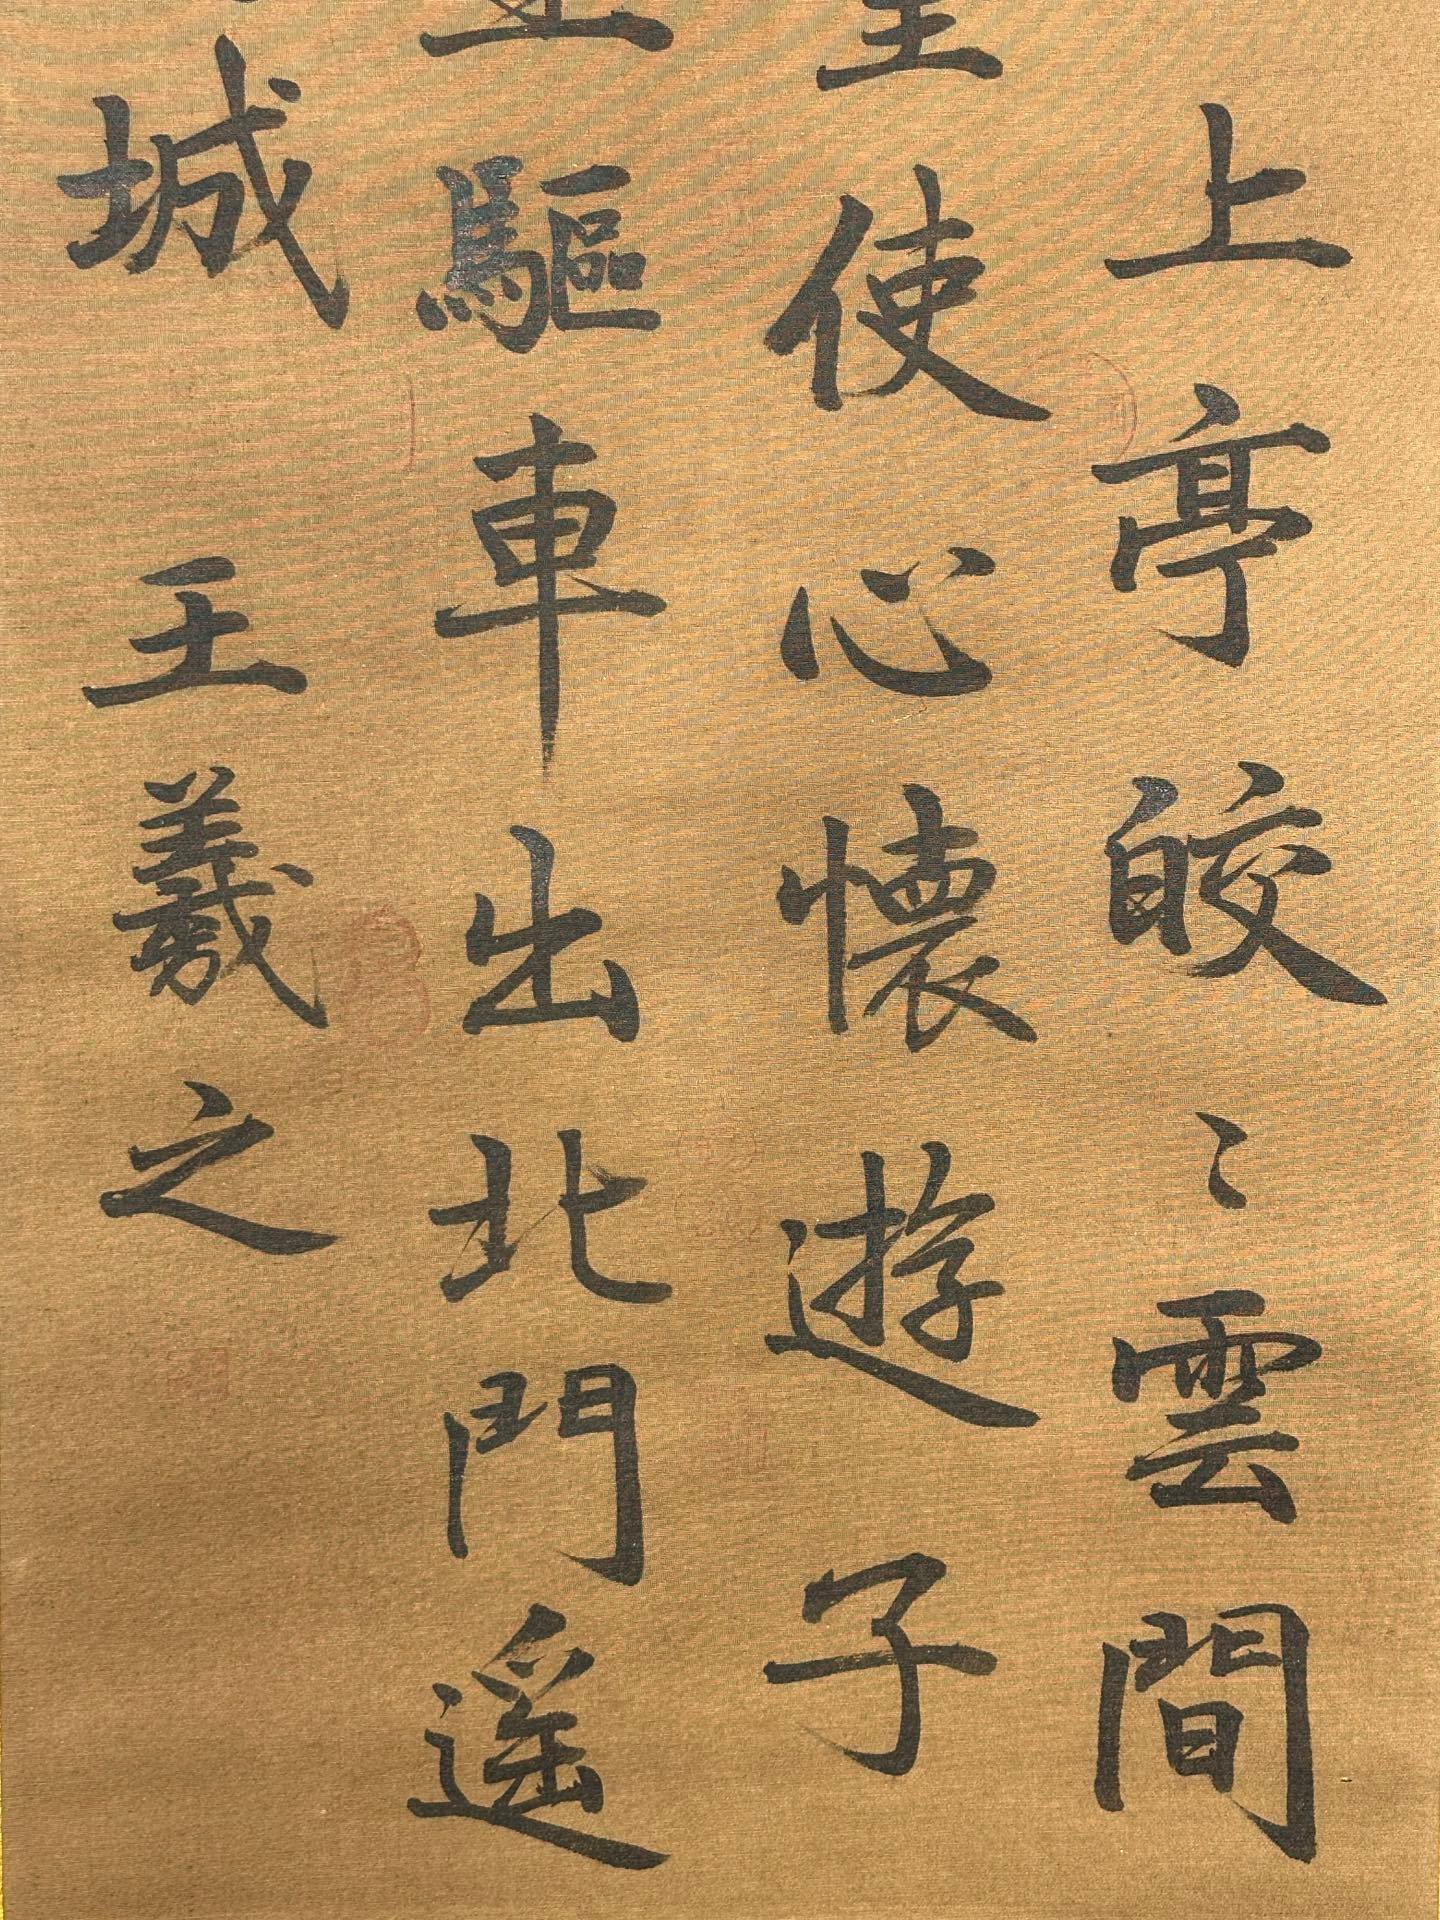 上亭皎〻雲間
使心懷遊子
驅車出北門遥
城
王羲之